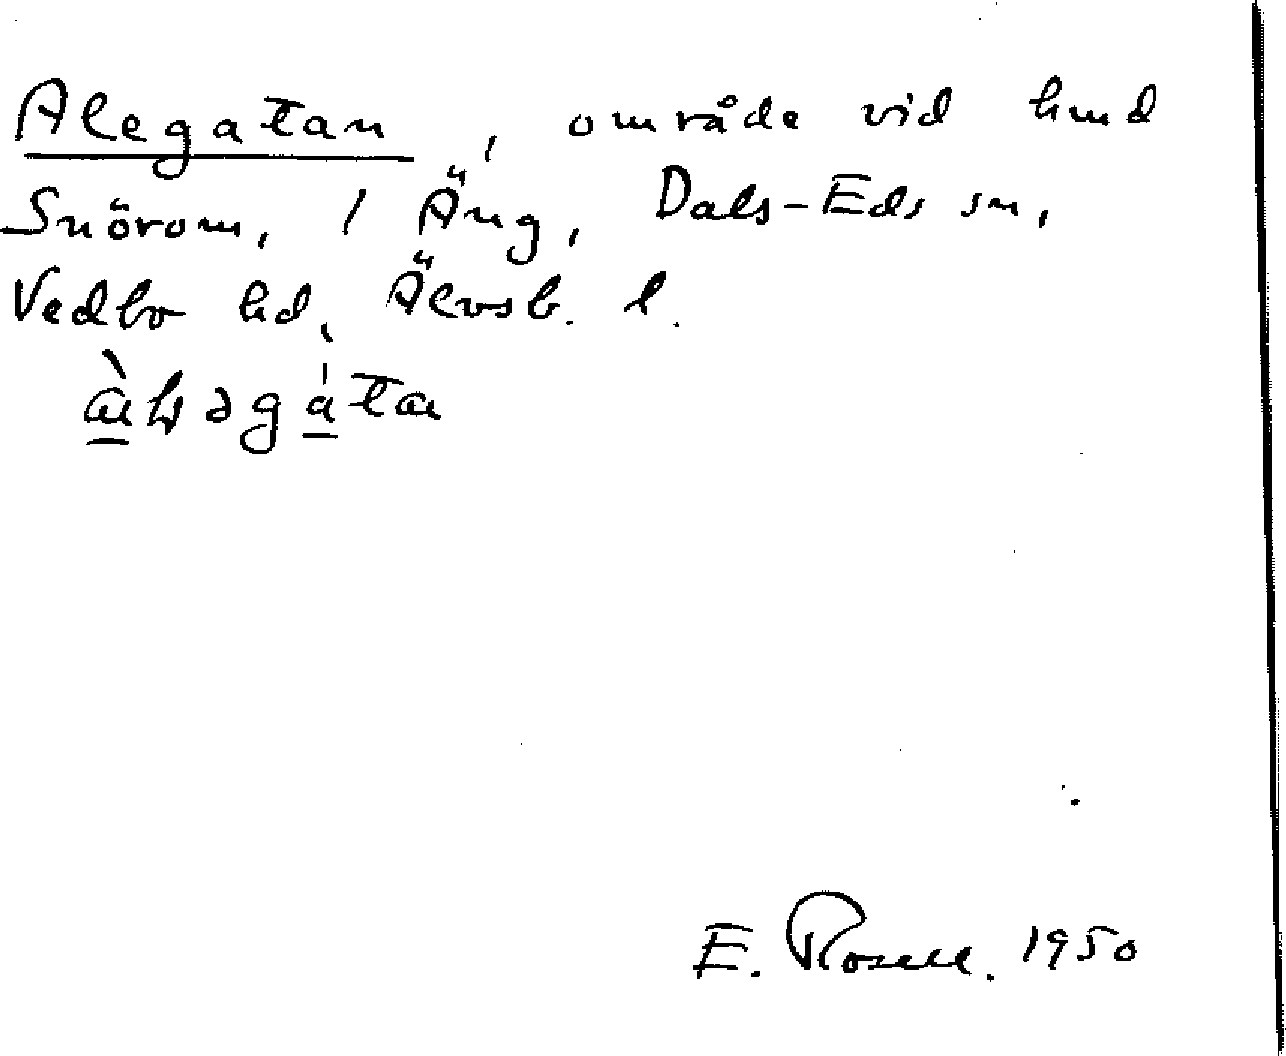 Alegatan, område vid hmd
Snörom, 1 Äng, Dals-Eds sn,
Vedbo hd, Älvsb. l.
E. Rosell. 1950